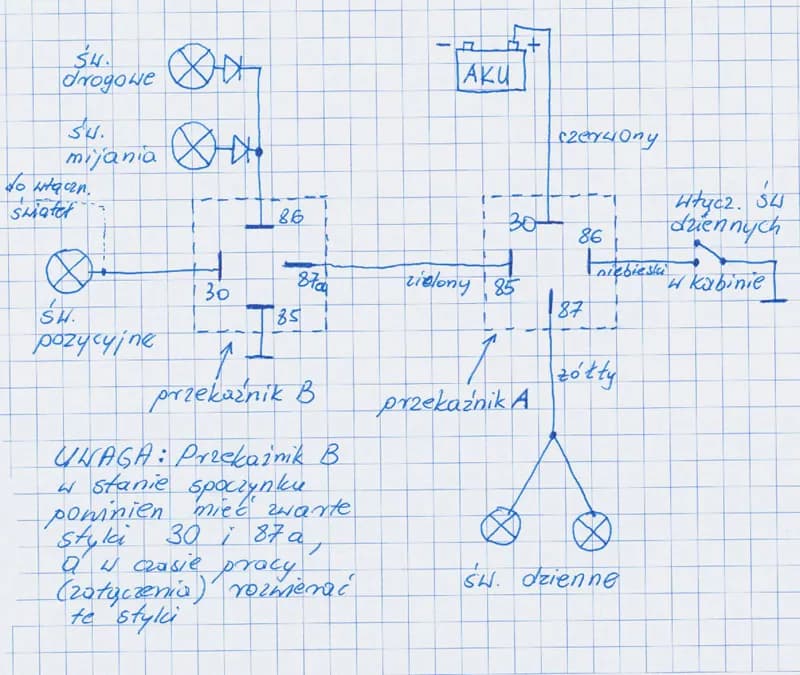 św.
drogowe
- +
AKU
św.
mijania
czerwony
do włączn.
świateł
86
30
87a
85
zielony
30
86
85
87
włącz. św
dziennych
niebieski
w kabinie
św.
pozycyjne
przekaźnik B
przekaźnik A
żółty
UWAGA: Przekaźnik B
w stanie spoczynku
powinien mieć zwarte
styki 30 i 87a,
a w czasie pracy
(załączenia) rozwierać
te styki
św. dzienne